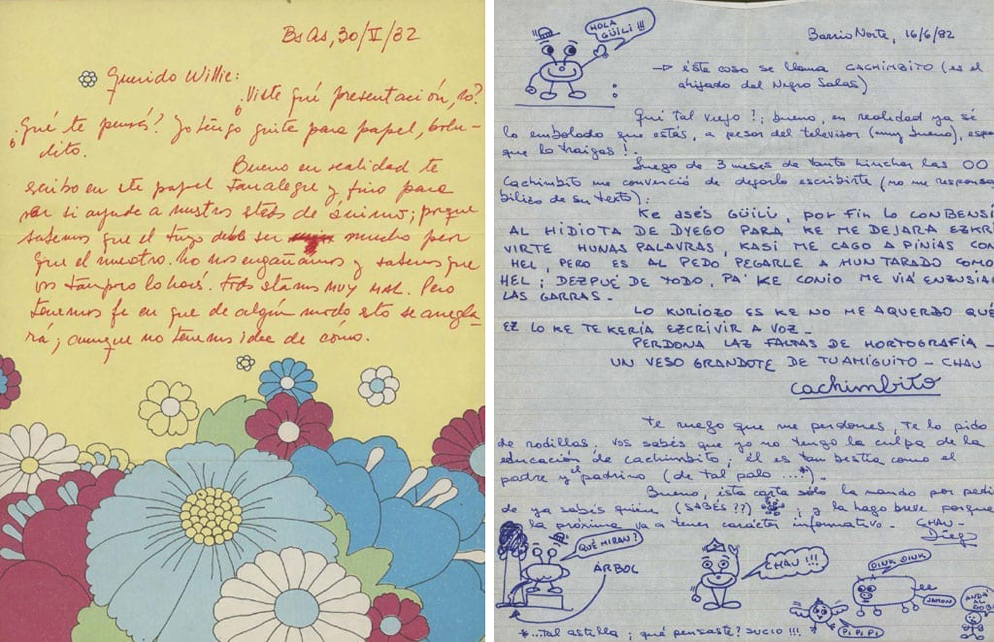 Bs As, 30/V/82
Querido Willie:
¡Viste qué presentación, no?
¿Qué te pensás? Yo tengo guita para papel, bolu-
dito.
Bueno en realidad te
escribo en este papel tan alegre y fino para
ver si ayuda a nuestros estados de ánimo; porque
sabemos que el tuyo debe ser mucho peor
que el nuestro. No nos engañamos y sabemos que
vos tampoco lo hacés. Todos estamos MUY MAL. Pero
tenemos fe en que de algún modo esto se arregla-
rá; aunque no tenemos idea de cómo.
HOLA
GÜILI!!!
Barrio Norte, 16/6/82
→ éste coso se llama CACHIMBITO (es el
ahijado del Negro Salas)
Qué tal viejo?; bueno, en realidad ya sé
lo embolado que estás, a pesar del televisor (muy bueno), espe
que lo traigas!.
Luego de 3 meses de tanto hinchar las OO
Cachimbito me convenció de dejarlo escribirte (no me responsa
bilizo de su texto):
KE ASÉS GÜILI, POR FIN LO CONBENSÍ
AL HIDIOTA DE DYEGO PARA KE ME DEJARA EZKRI
VIRTE HUNAS PALAVRAS, KASI ME CAGO A PIÑIAS CON
HEL, PERO ES AL PEDO PEGARLE A HUN TARADO COMO
HEL; DEZPUÉ DE TODO, PA' KE CONIO ME VIÁ ENZUSIAR
LAS GARRAS.
LO KURIOZO ES KE NO ME AQUERDO QUÉ
EZ LO KE TE KERÍA EZCRIVIR A VOZ.
PERDONA LAZ FALTAS DE HORTOGRAFÍA -
UN VESO GRANDOTE DE TU AMIGUITO - CHAU
cachimbito
Te ruego que me perdones, te lo pido
de rodillas. Vos sabés que yo no tengo la culpa de la
educación de cachimbito, él es tan bestia como el
padre y el padrino (de tal palo ....*).
Bueno, ésta carta sólo la mando por pedi
de ya sabés quién (SABÉS??) ; y la hago breve porque
la próxima va a tener carácter informativo. CHAU-
Diego
QUÉ MIRAN?
ÁRBOL
CHAU!!!
OINK OINK
JAMON
PI PI PI
ANDÁ
AL
*...tal astilla; qué pensaste? SUCIO!!!